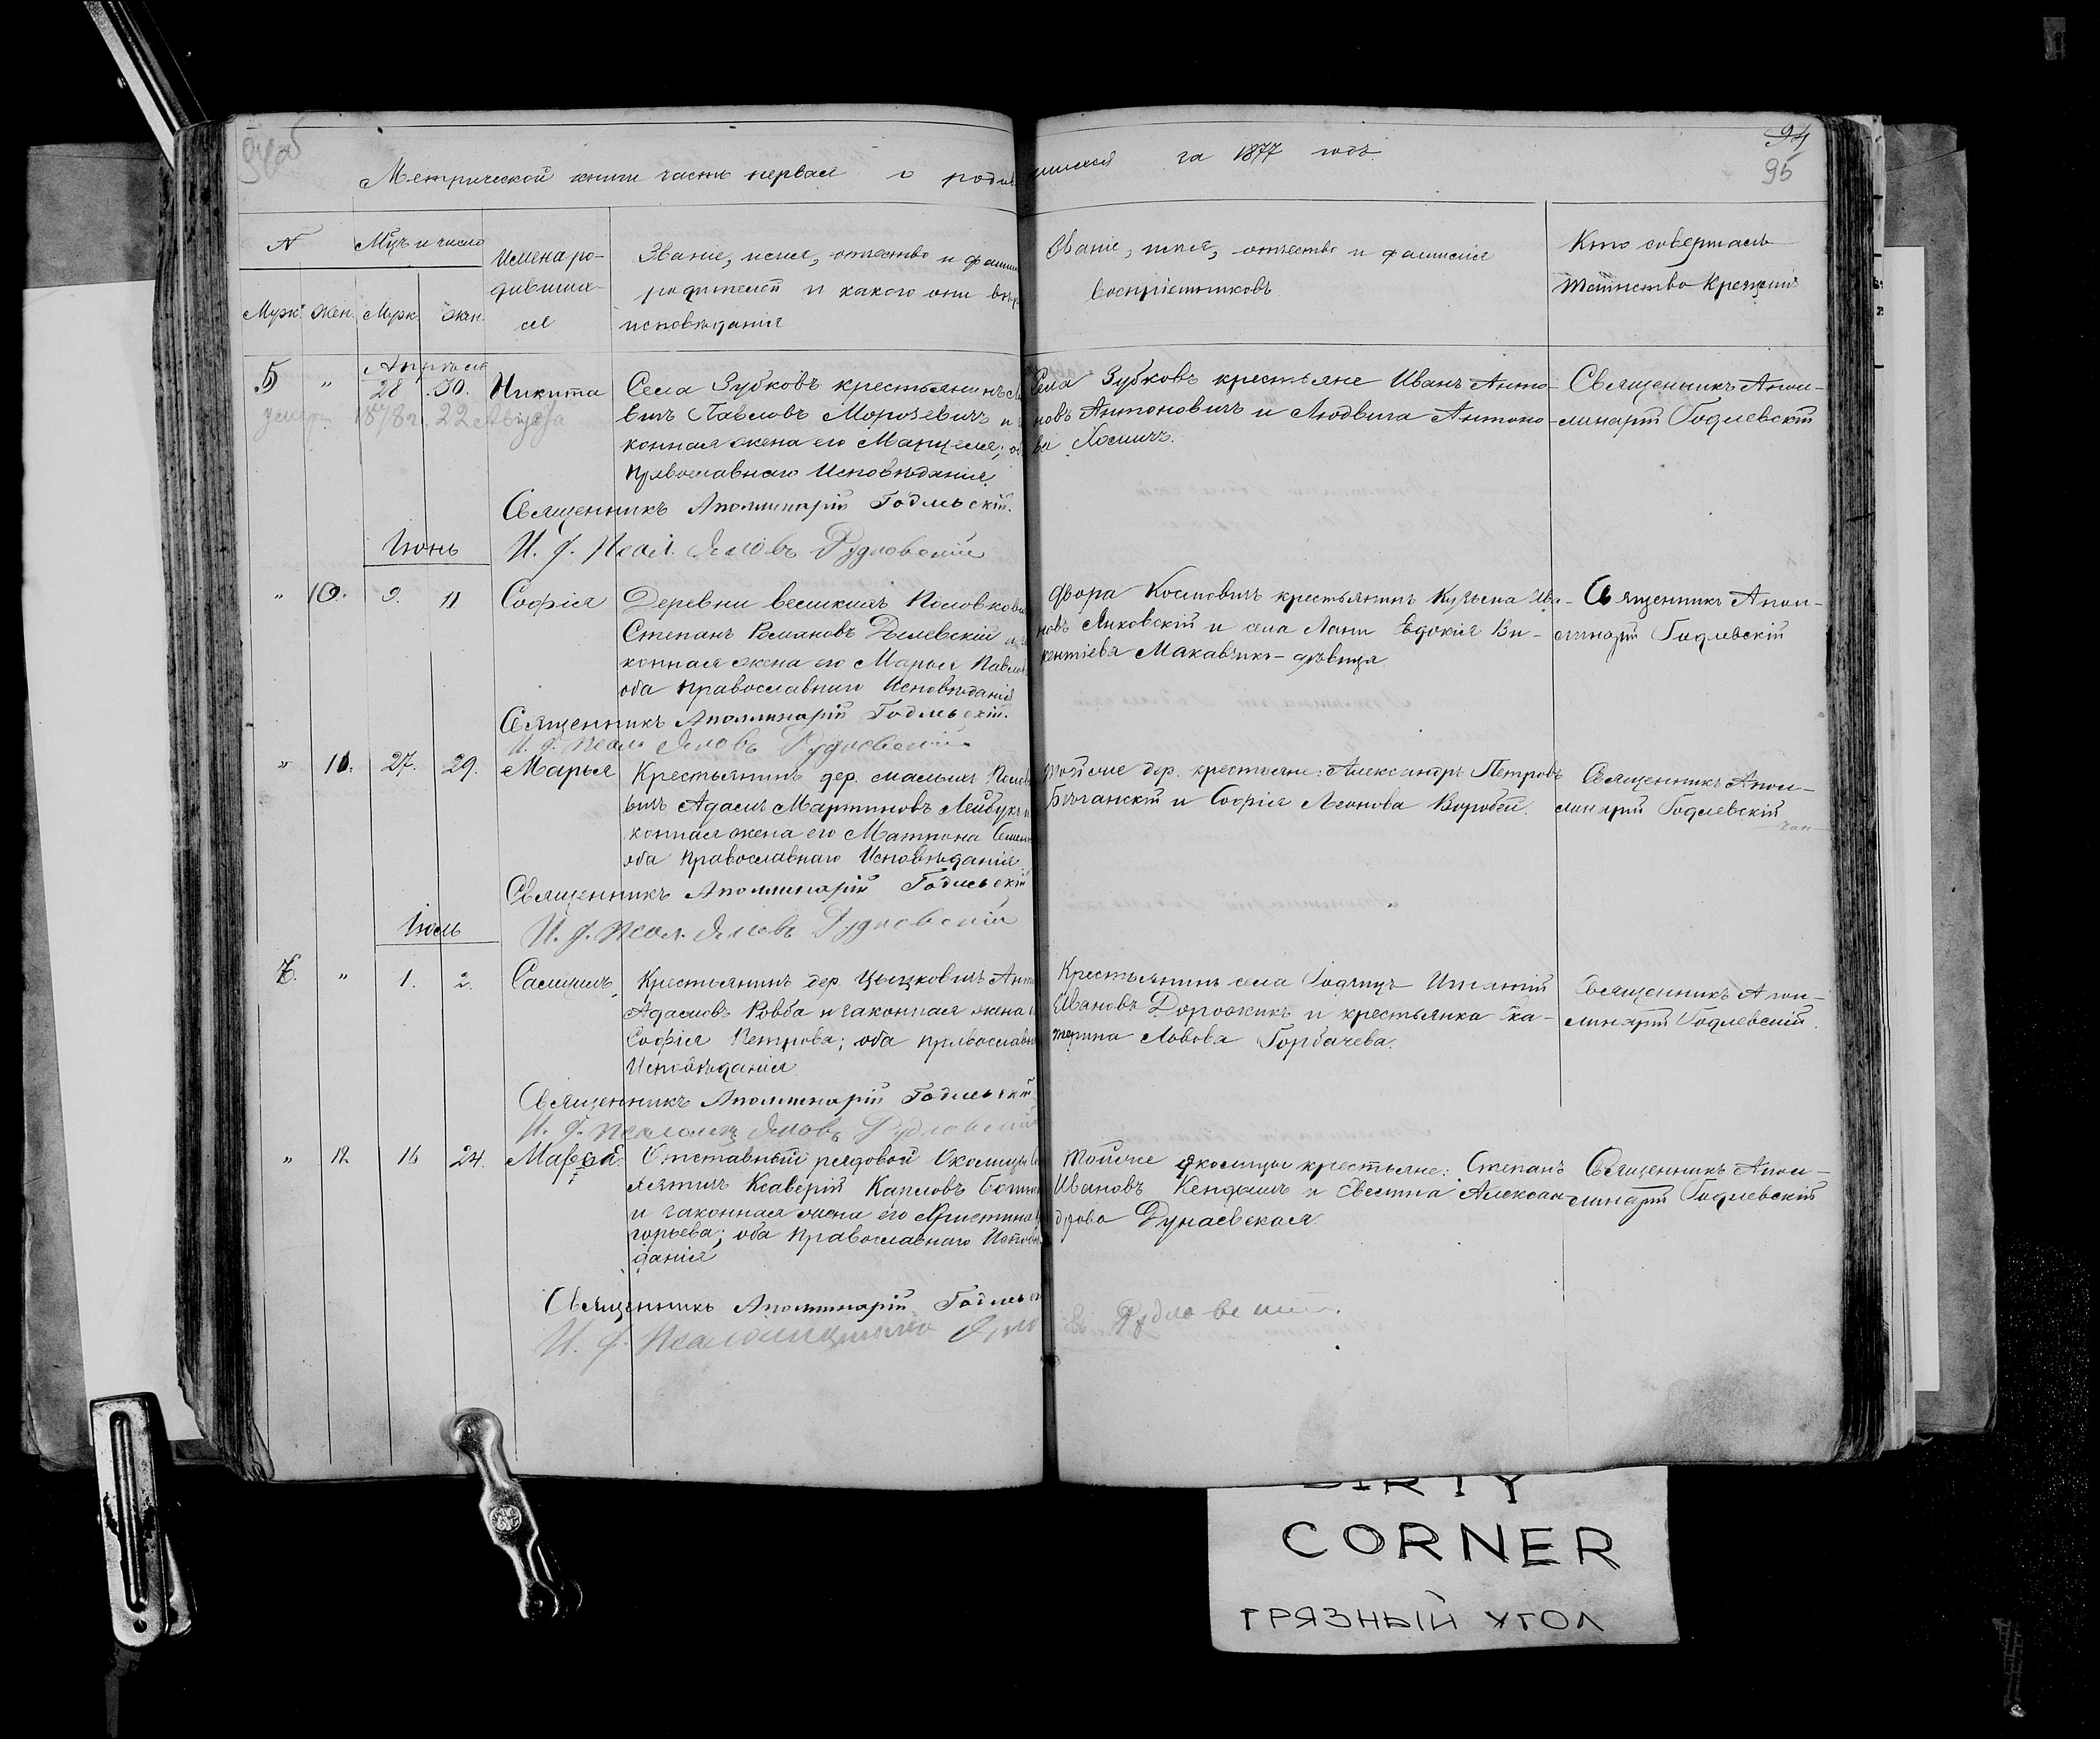 94об
94
95
Метрической книги часть первая о родив
шихся за 1877 годъ.
N Мцъ и число
Имена ро-
дивших-
ся
Званіе, имя, отчество и фамил
родителей и какого они вѣр
исповѣданія
Званіе, имя, отчество и фамилія
воспріемниковъ
Кто совершалъ
таинство крещенія
Муж. Жен. Муж. Жен.
Апрѣля
5 " 28 30. Никита
умеръ 1878г. 22 Августа
Села Зубковъ крестьянинъ
вичъ Павловъ Морозевичъ и
конная жена его Марцеля; об
Православнаго Исповѣданія
Села Зубковъ крестьяне Иванъ Анто-
новъ Антоновичъ и Людвига Антоно-
ва Хомичъ.
Священникъ Апол-
линарій Годлевскій
Священникъ Аполлинарій Годлевскій.
И. д. Псал. Яковъ Рудковскій
Іюнь
" 10. 9. 11 Софія
Деревни великихъ
Степанъ Романовъ Дылевскій и
конная жена его Марья Павлов
оба православнаго Исповѣданія
двора крестьянинъ Кузьма Ива-
новъ Янковскій и села Лани Евдокія Ви-
кентіева Макавчикъ-дѣвица
Священникъ Апол-
линарій Годлевскій
Священникъ Аполлинарій Годлевскій.
И. д. Псал. Яковъ Рудковскій
" 11. 27. 29. Марья
Крестьянинъ дер. малыхъ
вичъ Адамъ Мартиновъ Лейбукъ и
конная жена его Матрона Семен
оба православнаго Исповѣданія
Тойже дер. крестьяне: Александръ Петровъ
Бѣганскій и Софія Леонова Воробей.
Священникъ Апол-
линарій Годлевскій
Священникъ Аполлинарій Годлевскій
Іюль
И. д. Псал. Яковъ Рудковскій
6. " 1. 2. Самуилъ
Крестьянинъ дер. Цыцковичъ Анто
Адамовъ Ровба и законная жена
Софія Петрова; оба православн
Исповѣданія
Крестьянинъ села Игнатій
Ивановъ Дорожикъ и крестьянка Ека-
терина Львова Горбачева.
Священникъ Апол-
линарій Годлевскій.
Священникъ Аполлинарій Годлевскій
И. д. Псаломщ. Яковъ Рудковскій
" 12 16 24. Марѳа
Отставный рядовой Околицы
Ксаверій Карповъ
и законная жена его Христина
горьева; оба православнаго Исповѣ
данія
Тойже околицы крестьяне: Степанъ
Ивановъ Кендышъ и Алексан-
дрова Дунаевская.
Священникъ Апол-
линарій Годлевскій
Священникъ Аполлинарій Годлевск
И. д. Псаломщика Яко
въ Рудковскій.
DIRTY
CORNER
ГРЯЗНЫЙ УГОЛ